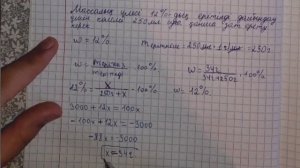 Массалық үлесі 12%-дық ерітінді дайындау
үшін көлемі 250 мл суда қанша зат еріту
керек
ω = 12%
m еріткіш = 250мл · 1 г/мл = 250г
ω = m еріген зат / m ерітінді · 100%
ω = 34г / 34г+250г · 100%
12% = x / 250г + x · 100%
ω = 12%
3000 + 12x = 100x
-100x + 12x = -3000
-88x = -3000
x = 34г